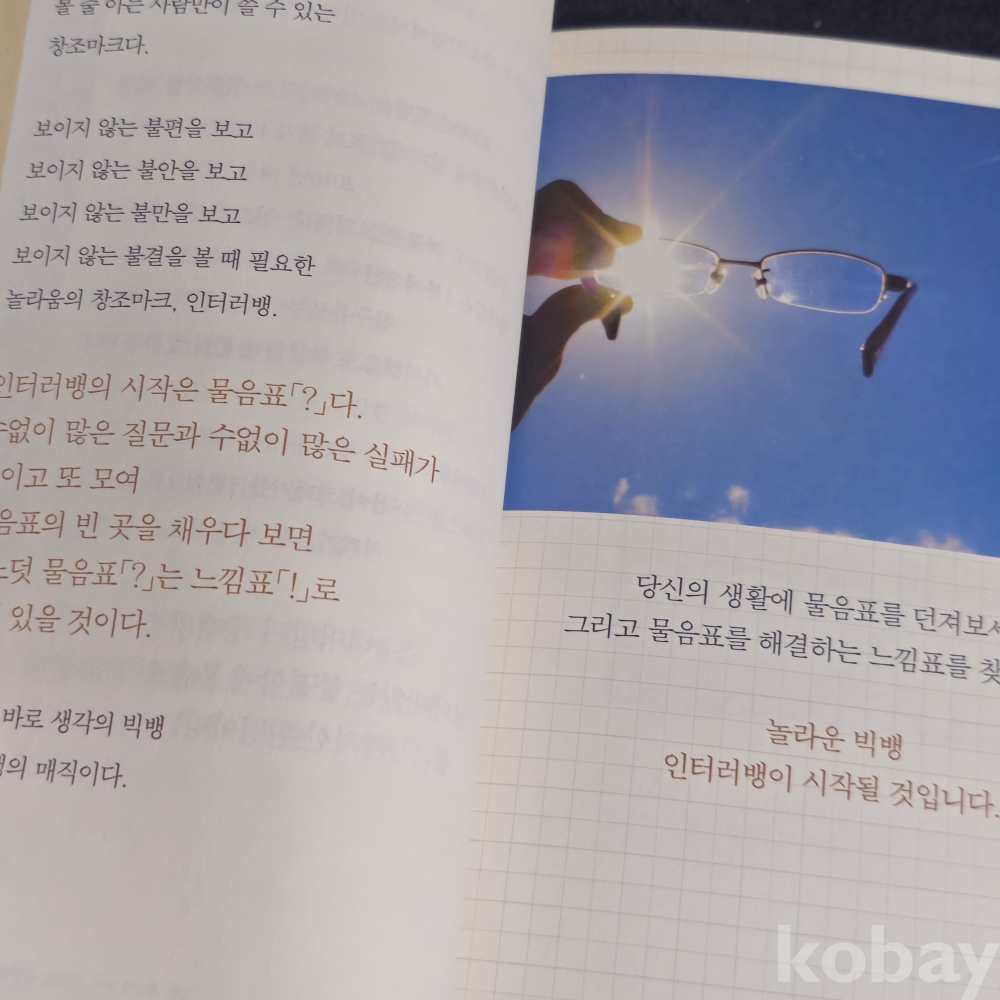 볼 줄 아는 사람만이 쓸 수 있는
창조마크다.
보이지 않는 불편을 보고
보이지 않는 불안을 보고
보이지 않는 불만을 보고
보이지 않는 불결을 볼 때 필요한
놀라움의 창조마크, 인터러뱅.
인터러뱅의 시작은 물음표「?」다.
수없이 많은 질문과 수없이 많은 실패가
이고 또 모여
음표의 빈 곳을 채우다 보면
느덧 물음표「?」는 느낌표「!」로
있을 것이다.
바로 생각의 빅뱅
뱅의 매직이다.
당신의 생활에 물음표를 던져보세
그리고 물음표를 해결하는 느낌표를 찾
놀라운 빅뱅
인터러뱅이 시작될 것입니다.
kobay